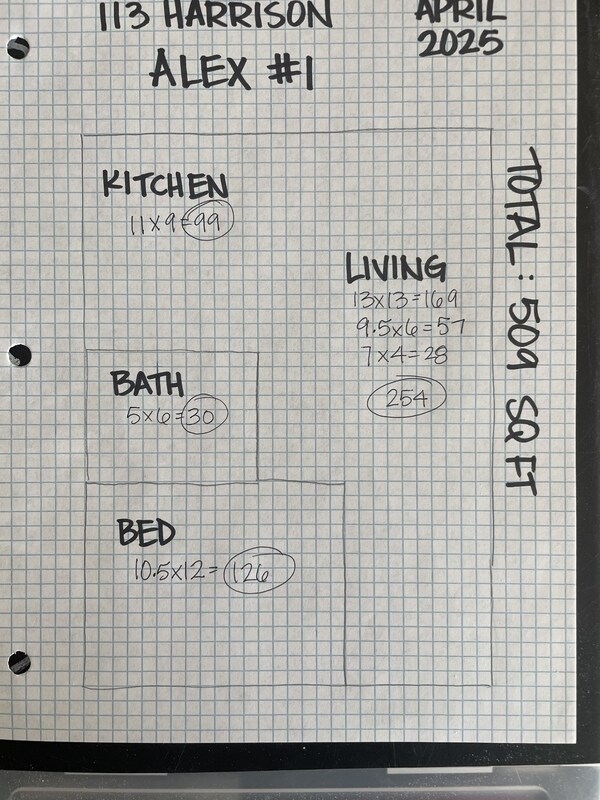 113 HARRISON
APRIL
2025
ALEX #1
KITCHEN
11x9=99
LIVING
13x13=169
9.5x6=57
7x4=28
254
BATH
5x6=30
BED
10.5x12=126
TOTAL: 509 SQ FT